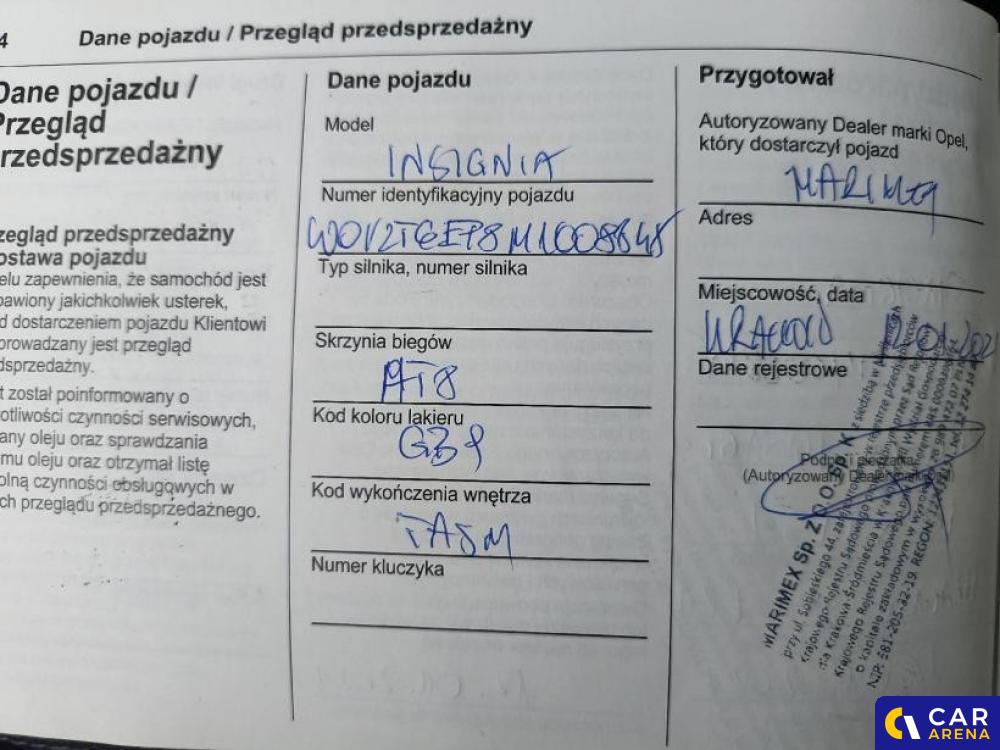 4
Dane pojazdu / Przegląd przedsprzedażny
Dane pojazdu /
Przegląd
rzedsprzedażny
zegląd przedsprzedażny
ostawa pojazdu
elu zapewnienia, że samochód jest
bawiony jakichkolwiek usterek,
d dostarczeniem pojazdu Klientowi
prowadzany jest przegląd
dsprzedażny.
t został poinformowany o
otliwości czynności serwisowych,
any oleju oraz sprawdzania
mu oleju oraz otrzymał listę
olną czynności obsługowych w
ch przeglądu przedsprzedażnego.
Dane pojazdu
Model
INSIGNIA
Numer identyfikacyjny pojazdu
Typ silnika, numer silnika
Skrzynia biegów
AT8
Kod koloru lakieru
Kod wykończenia wnętrza
TASM
Numer kluczyka
Przygotował
Autoryzowany Dealer marki Opel,
który dostarczył pojazd
Adres
Miejscowość, data
KRAKÓW
Dane rejestrowe
(Autoryzowany Dealer
MARIMEX Sp. Z O.O. Sp. K.
przy ul. Sobieskiego 44,
Krajowego Rejestru Sądowego
dla Krakowa-Śródmieścia w
Krajowego Rejestru Sądowego
o kapitale zakładowym w wysokości
CAR
ARENA